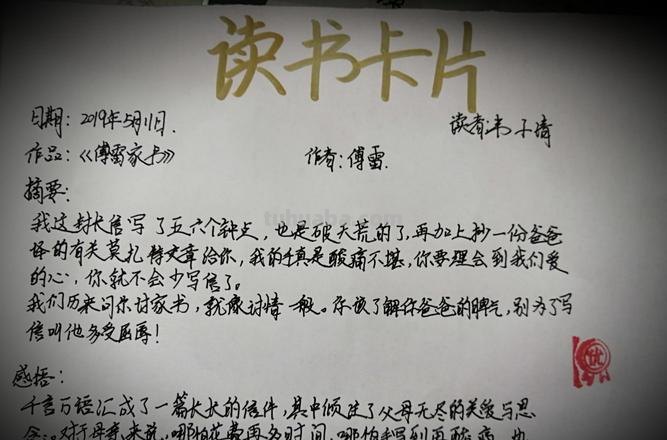 读书卡片
日期：2019年5月11日.
读者：韦子靖
作品：《傅雷家书》
作者：傅雷.
摘要：
我这封长信写了五六个钟点，也是破天荒的了，再加上抄一份爸爸
译的有关莫扎特文章给你，我的手真是酸痛不堪，你要理会到我们爱
的心，你就不会少写信了。
我们历来问你讨家书，就像讨情一般。你该了解你爸爸的脾气，别为了写
信叫他多受屈辱！
优
感悟：
千言万语汇成了一篇长长的信件，其中倾注了父母无尽的关爱与思
念。对于母亲来说，哪怕花费再多时间，哪怕手写到再酸痛，也
tuhuaba.com